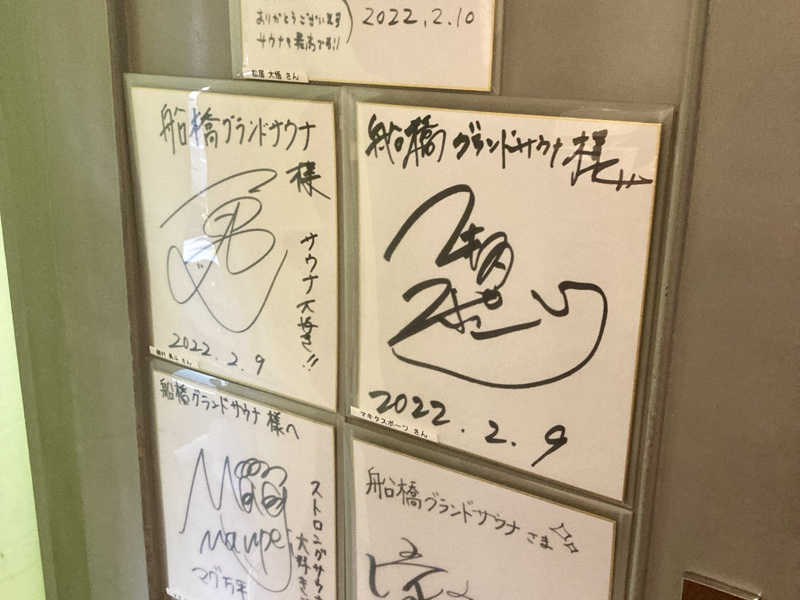 ありがとうございます
サウナも最高です!!
2022.2.10
松居 大悟 さん
船橋グランドサウナ
様
サウナ大好き!!
2022.2.9
さん
船橋グランドサウナ様
2022.2.9
マキタスポーツ さん
船橋グランドサウナ様へ
ストロングサウナ
大好き
マグ万平
船橋グランドサウナさま